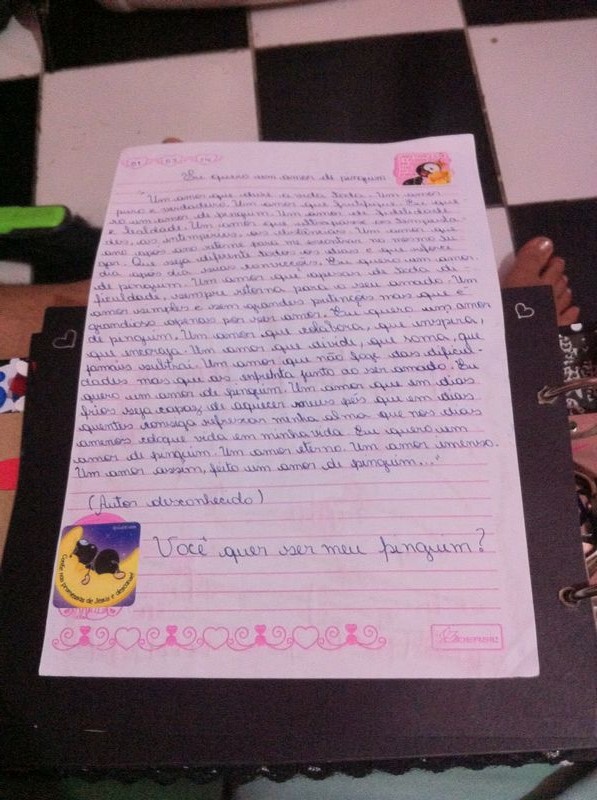 Eu quero um amor de pinguim
"Um amor que dure a vida toda. Um amor
puro e verdadeiro. Um amor que justifique. Eu que-
ro um amor de pinguim. Um amor de fidelidade
e lealdade. Um amor que ultrapasse as tempesta-
des, as intempéries, as distâncias. Um amor que
ano após ano retorne para me encontrar no mesmo lu-
gar. Que seja diferente todos os dias e que reforce
dia após dia suas convicções. Eu quero um amor
de pinguim. Um amor que apesar de toda di-
ficuldade, sempre retorna para o seu amado. Um
amor simples e sem grandes pretenções mas que é
grandioso apenas por ser amor. Eu quero um amor
de pinguim. Um amor que colabora, que inspira,
que encoraja. Um amor que divide, que soma, que
jamais subtrai. Um amor que não foge das dificul-
dades mas que as enfrenta junto ao ser amado. Eu
quero um amor de pinguim. Um amor que em dias
frios seja capaz de aquecer meus pés que em dias
quentes consiga refrescar minha alma que nos dias
amenos coloque vida em minha vida. Eu quero um
amor de pinguim. Um amor eterno. Um amor imenso.
Um amor assim, feito um amor de pinguim..."
(Autor desconhecido)
Você quer ser meu pinguim?
Confie nas promessas de Jesus e descanse!